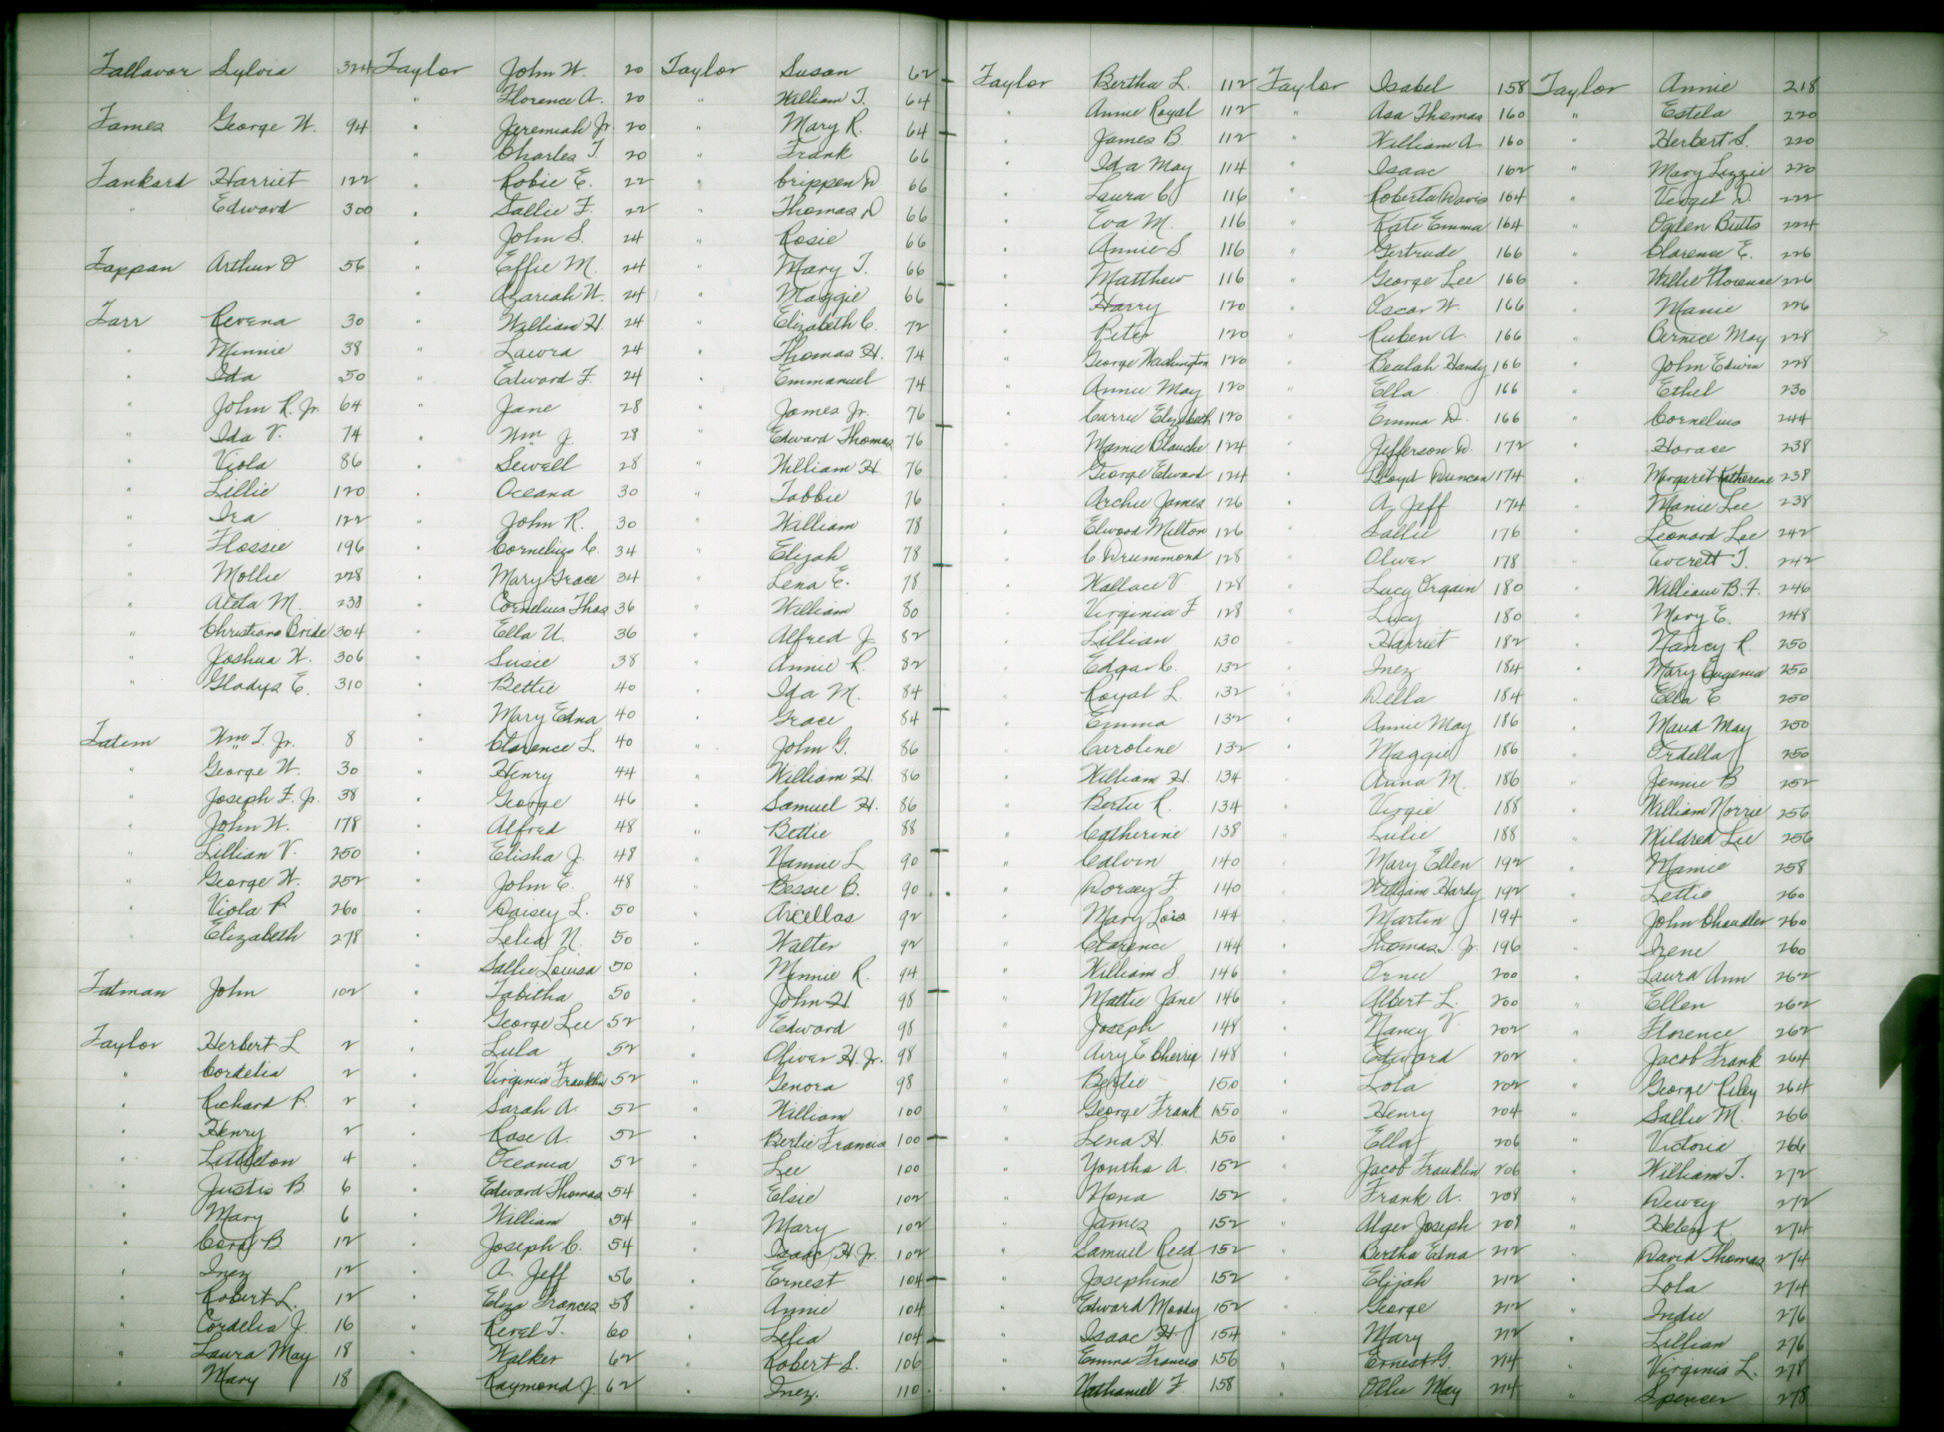 Tallavor Sylvia 324
Tames George W. 94
Tankard Harriet 122
" Edward 300
Tappan Arthur O 56
Tarr Revena 30
" Minnie 38
" Ida 50
" John R. Jr. 64
" Ida V. 74
" Viola 86
" Lillie 120
" Ira 122
" Flossie 196
" Mollie 228
" Aleta M. 238
" Christiana Bride 304
" Joshua W. 306
" Gladys E. 310
Tatem Wm T. Jr. 8
" George W. 30
" Joseph F. Jr. 38
" John W. 178
" Lillian V. 250
" George W. 252
" Viola P. 260
" Elizabeth 278
Tatman John 102
Taylor Herbert L 2
" Cordelia 2
" Richard P. 2
" Henry 2
" Littleton 4
" Justis B 6
" Mary 6
" Cora B. 12
" Inez 12
" Robert L. 12
" Cordelia J. 16
" Laura May 18
" Mary 18
Taylor John W. 20
" Florence A. 20
" Jeremiah Jr. 20
" Charles T. 20
" Robie E. 22
" Sallie F. 22
" John S. 24
" Effie M. 24
" Azariah W. 24
" William H. 24
" Laura 24
" Edward F. 24
" Jane 28
" Wm J. 28
" Sewell 28
" Oceana 30
" John R. 30
" Cornelius C. 34
" Mary Grace 34
" Cornelius Thos 36
" Ella U. 36
" Susie 38
" Bettie 40
" Mary Edna 40
" Clarence L. 40
" Henry 44
" George 46
" Alfred 48
" Elisha J. 48
" John E. 48
" Daisey L. 50
" Lelia N. 50
" Sallie Louisa 50
" Tabitha 50
" George Lee 52
" Lula 52
" Virginia Franklin 52
" Sarah A. 52
" Rose A. 52
" Oceania 52
" Edward Thomas 54
" William 54
" Joseph C. 54
" A. Jeff 56
" Eliza Frances 58
" Revel T. 60
" Walker 62
" Raymond J. 62
Taylor Susan 62
" William T. 64
" Mary R. 64
" Frank 66
" Crippen D 66
" Thomas D 66
" Rosie 66
" Mary T. 66
" Maggie 66
" Elizabeth C. 72
" Thomas H. 74
" Emmanuel 74
" James Jr. 76
" Edward Thomas 76
" William H. 76
" Tabbie 76
" William 78
" Elijah 78
" Lena E. 78
" William 80
" Alfred J. 82
" Annie R. 82
" Ida M. 84
" Grace 84
" John G. 86
" William H. 86
" Samuel H. 86
" Bettie 88
" Nannie L 90
" Bessie B. 90
" Arcellas 92
" Walter 92
" Minnie R. 94
" John H 98
" Edward 98
" Oliver H. Jr. 98
" Genora 98
" William 100
" Bertie Francis 100
" Lee 100
" Elsie 102
" Mary 102
" Isaac H. Jr. 102
" Ernest 104
" Annie 104
" Lelia 104
" Robert S. 106
" Inez. 110
Taylor Bertha L. 112
" Annie Royal 112
" James B 112
" Ida May 114
" Laura C 116
" Eva M. 116
" Annie S. 116
" Matthew 116
" Harry 120
" Peter 120
" George Washington 120
" Annie May 120
" Carrie Elizabeth 120
" Mamie Blanche 124
" George Edward 124
" Archie James 126
" Elwood Milton 126
" C Drummond 128
" Wallace V 128
" Virginia F 128
" Lillian 130
" Edgar C. 132
" Royal L. 132
" Emma 132
" Caroline 132
" William H. 134
" Bertie R. 134
" Catherine 138
" Calvin 140
" Dorsey F. 140
" Mary Lois 144
" Clarence 144
" William S. 146
" Mattie Jane 146
" Joseph 148
" Airy E Cherrix 148
" Bertie 150
" George Frank 150
" Lena H. 150
" Yontha A. 152
" Nona 152
" James 152
" Samuel Reed 152
" Josephine 152
" Edward Moody 152
" Isaac H 154
" Emma Francis 156
" Nathaniel F 158
Taylor Isabel 158
" Asa Thomas 160
" William A 160
" Isaac 162
" Roberta Davis 164
" Kate Emma 164
" Gertrude 166
" George Lee 166
" Oscar W. 166
" Ruben A. 166
" Beulah Handy 166
" Ella 166
" Emma D. 166
" Jefferson D. 172
" Lloyd Duncan 174
" A. Jeff 174
" Sallie 176
" Oliver 178
" Lucy Orgain 180
" Lucy 180
" Harriet 182
" Inez 184
" Della 184
" Annie May 186
" Maggie 186
" Anna M. 186
" Virgie 188
" Lulie 188
" Mary Ellen 192
" William Hardy 192
" Martin 194
" Thomas T. Jr. 196
" Ornie 200
" Albert L. 200
" Nancy V. 202
" Edward 202
" Lola 202
" Henry 204
" Ella 206
" Jacob Franklin 206
" Frank A. 208
" Alger Joseph 208
" Bertha Edna 212
" Elijah 212
" George 212
" Mary 212
" Ernest G. 214
" Ollie May 214
Taylor Annie 218
" Estela 220
" Herbert S. 220
" Mary Lizzie 220
" D. 222
" Ogden Butts 224
" Clarence E. 226
" Willie Florence 226
" Manie 226
" Bernice May 228
" John Edwin 228
" Ethel 230
" Cornelius 244
" Horace 238
" Margaret Katherine 238
" Manie Lee 238
" Leonard Lee 242
" Everett T. 242
" William B. F. 246
" Mary E. 248
" Nancy R. 250
" Mary Eugenia 250
" Ella E 250
" Maud May 250
" Ordella 250
" Jennie B 252
" William Norris 256
" Mildred Lee 256
" Mamie 258
" Lettie 260
" John Chandler 260
" Irene 260
" Laura Ann 262
" Ellen 262
" Florence 262
" Jacob Frank 264
" George Riley 264
" Sallie M. 266
" Victoria 266
" William T. 272
" Dewey 272
" Helen K 274
" David Thomas 274
" Lola 274
" Indie 276
" Lillian 276
" Virginia L. 278
" Spencer 278